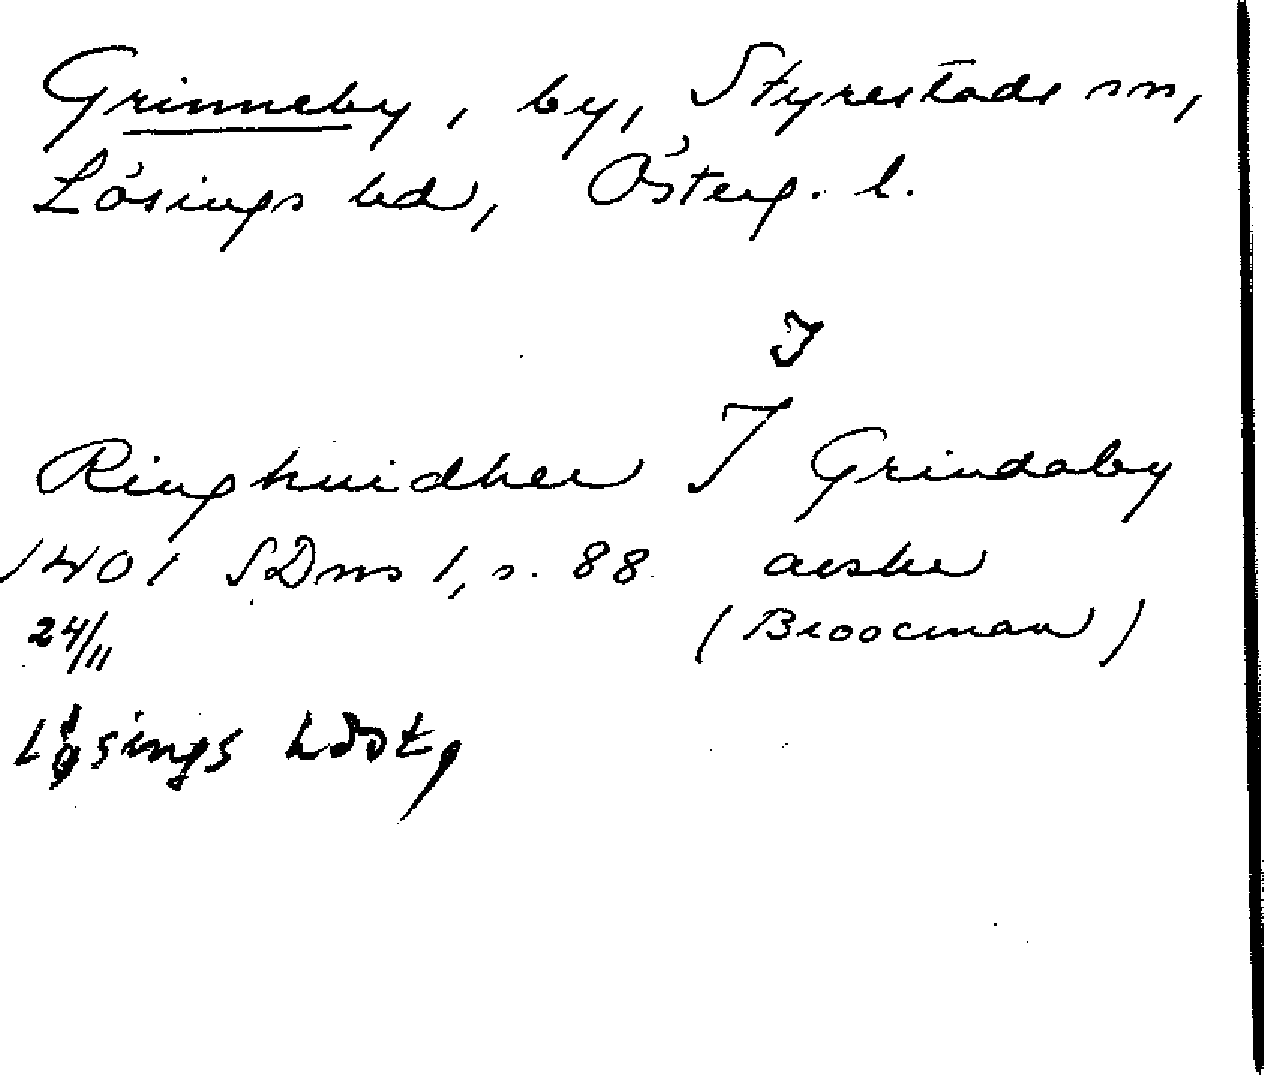 Grinneby, by, Styrestads sn,
Lösings hd, Österg. l.
I
Ringhuidher I Grindaby
1401 SDns 1, s. 88 avskr
24/11 (Broocman)
Lösings hdstg